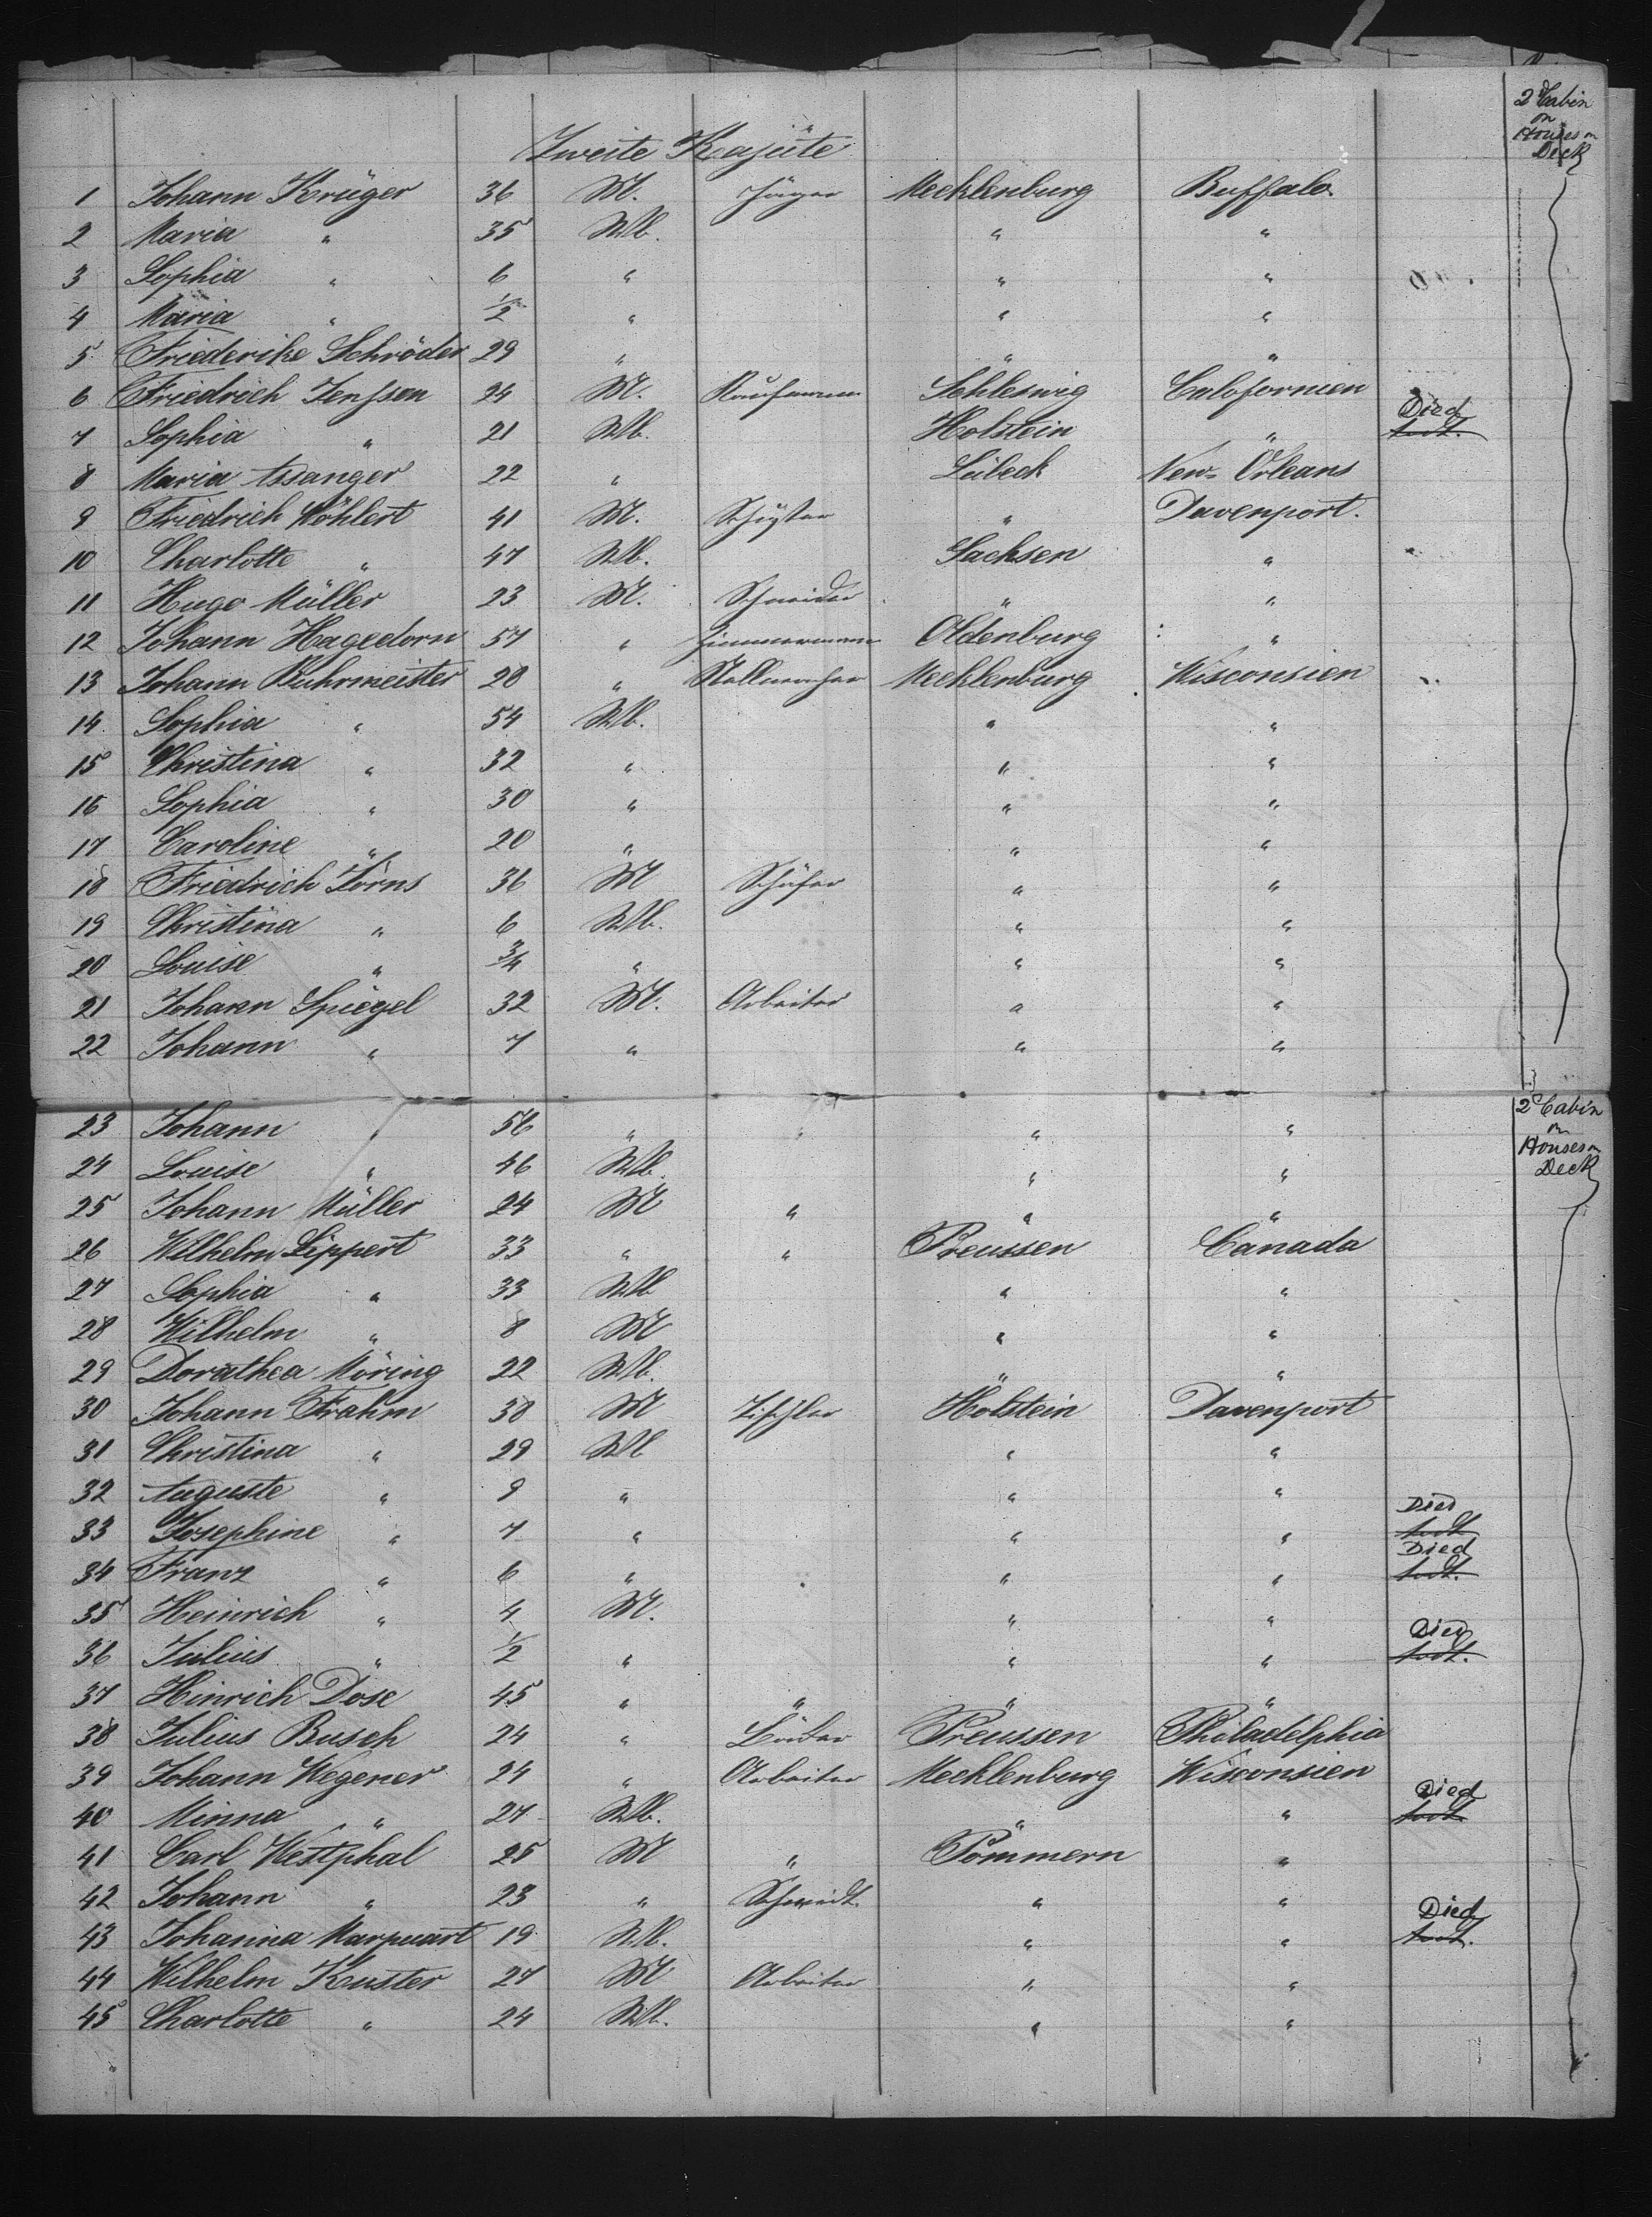 2 Cabin
on
Houses on
Deck
Zweite Kajüte
1 Johann Krüger 36 M. Jäger Mecklenburg Buffalo
2 Maria " 35 Wb. " "
3 Sophia " 6 " " "
4 Maria " 1/2 " " "
5 Friederike Schröder 29 " " "
6 Friedrich Jenssen 24 M. Kaufmann Schleswig Calofornien
7 Sophia " 21 Wb. Holstein " Died todt.
8 Maria Assanger 22 " Lübeck New-Orleans
9 Friedrich Wöhlert 41 M. " Davenport.
10 Charlotte " 47 Wb. Sachsen "
11 Hugo Müller 23 M. Schneider " "
12 Johann Hagedorn 57 " Zimmermann Oldenburg "
13 Johann Kuhrmeister 28 " Stellmacher Mecklenburg Wisconsien
14 Sophia " 54 Wb. " "
15 Christina " 32 " " "
16 Sophia " 30 " " "
17 Caroline " 20 " " "
18 Friedrich Törns 36 M Schäfer " "
19 Christina " 6 Wb. " "
20 Louise " 3/4 " " "
21 Johann Spiegel 32 M. Arbeiter " "
22 Johann " 7 " " "
2 Cabin
on
Houses on
Deck
23 Johann " 56 " " " "
24 Louise " 46 Wb. " "
25 Johann Müller 24 M " " "
26 Wilhelm Lippert 33 " " Preussen Canada
27 Sophia " 33 Wb " "
28 Wilhelm " 8 M " "
29 Dorathea Möring 22 Wb. " "
30 Johann Frahm 38 M Tischler Holstein Davenport
31 Christina " 29 Wb " "
32 Auguste " 9 " " "
33 Josephine " 7 " " " Died todt
34 Franz " 6 " " " Died todt.
35 Heinrich " 4 M. " "
36 Julius " 1/2 " " " Died todt.
37 Hinrich Dose 45 " " " "
38 Julius Busch 24 " Preussen Philadelphia
39 Johann Wegener 24 " Arbeiter Mecklenburg Wisconsien
40 Minna " 27 Wb. " " Died todt
41 Carl Westphal 25 M " Pommern "
42 Johann " 23 " Schmidt " "
43 Johanna Marquart 19 Wb. " " Died todt.
44 Wilhelm Kuster 27 M Arbeiter " "
45 Charlotte " 24 Wb. " "